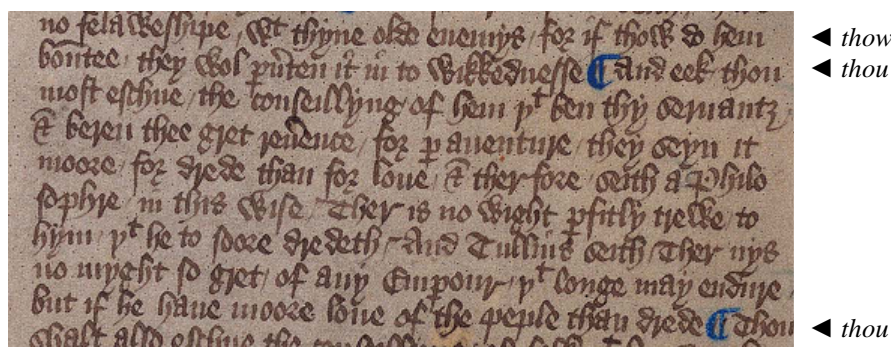 no felaweshipe / wt thyne olde enemys / for if thow do hem ◄ thow
bontee / they wol puten it in to wikkednesse ¶ And eek thou ◄ thou
most eschue / the conseillyng / of hem þt ben thy seruantz /
& beren thee gret reuence / for pauenture / they seyn it
moore / for drede than for loue / & therfore seith a Philo
sophre / in this wise / Ther is no wight pfitly trewe / to
hym / þt he to soore dredeth / And Tullius seith / Ther nys
no myght so gret / of any Empour / þt longe may endure /
but if he haue moore loue of the peple than drede ¶ Thou ◄ thou
shalt also eschue the